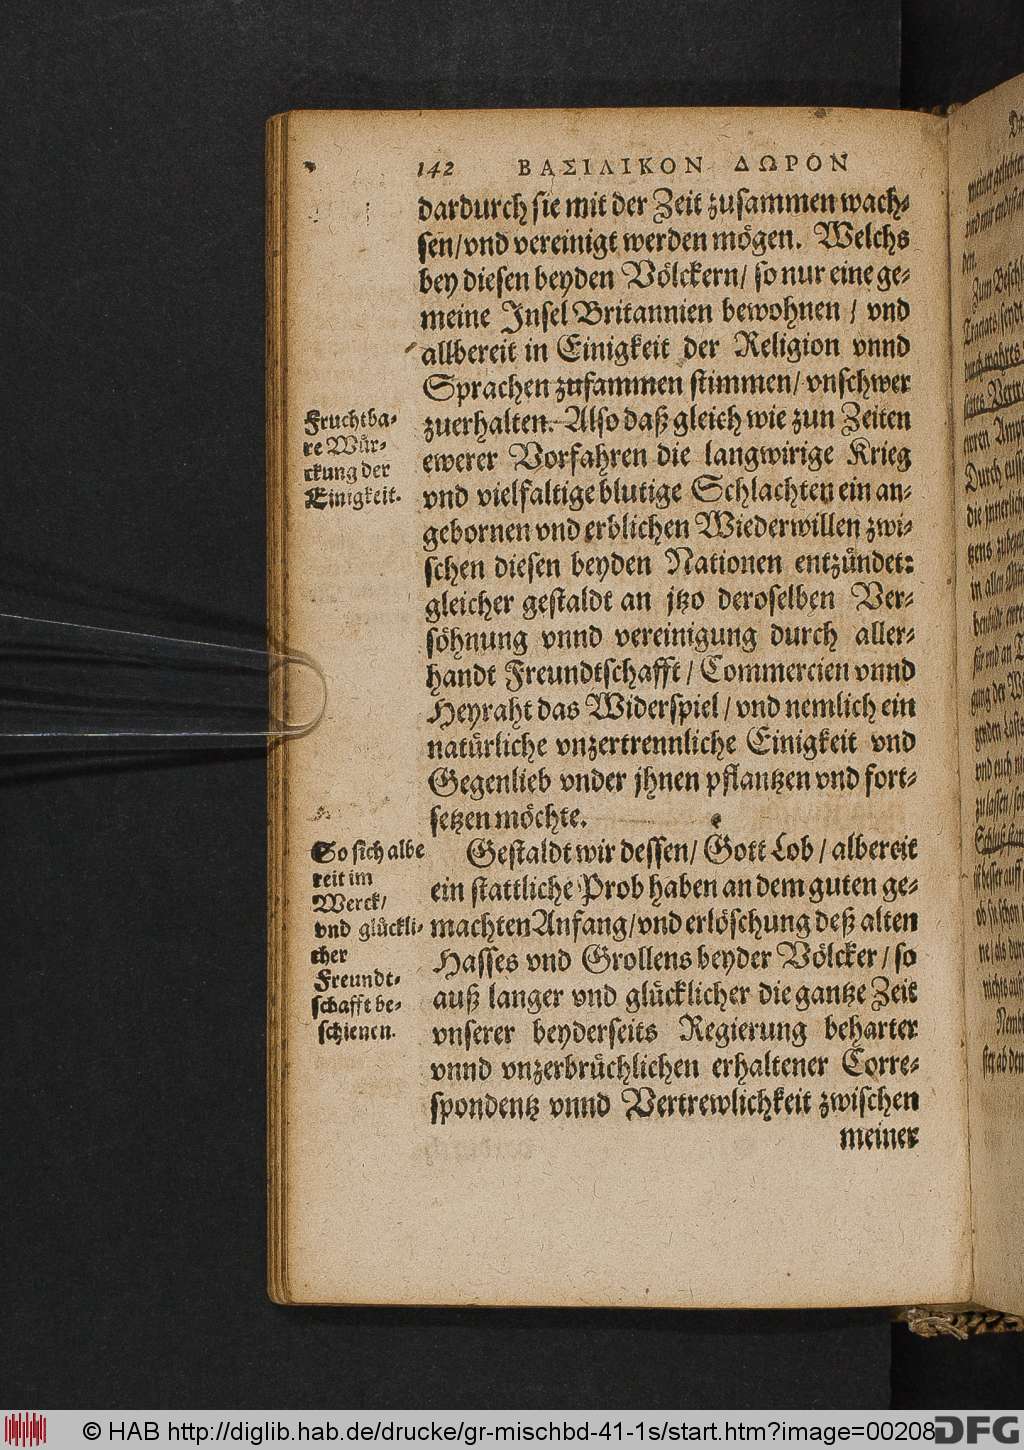 142 ΒΑΣΙΛΙΚΟΝ ΔΩΡΟΝ
dardurch sie mit der Zeit zusammen wach-
sen/vnd vereinigt werden mögen. Welchs
bey diesen beyden Völckern/ so nur eine ge-
meine Insel Britannien bewohnen / vnd
allbereit in Einigkeit der Religion vnnd
Sprachen zusammen stimmen/ vnschwer
zuerhalten. Also daß gleich wie zun Zeiten
ewerer Vorfahren die langwirige Krieg
vnd vielfaltige blutige Schlachten ein an-
gebornen vnd erblichen Wiederwillen zwi-
schen diesen beyden Nationen entzündet:
gleicher gestaldt an jtzo deroselben Ver-
söhnung vnnd vereinigung durch aller-
handt Freundtschafft / Commercien vnnd
Heyraht das Widerspiel / vnd nemlich ein
natürliche vnzertrennliche Einigkeit vnd
Gegenlieb vnder jhnen pflantzen vnd fort-
setzen möchte.
Gestaldt wir dessen/ Gott Lob / albereit
ein stattliche Prob haben an dem guten ge-
machten Anfang/vnd erlöschung deß alten
Hasses vnd Grollens beyder Völcker / so
auß langer vnd glücklicher die gantze Zeit
vnserer beyderseits Regierung beharter
vnnd vnzerbrüchlichen erhaltener Corre-
spondentz vnnd Vertrewlichkeit zwischen
meiner
Fruchtba-
re Wür-
ckung der
Einigkeit.
So sich albe
reit im
Werck/
vnd glückli-
cher
Freundt-
schafft be-
schienen.
© HAB http://diglib.hab.de/drucke/gr-mischbd-41-1s/start.htm?image=00208
DFG